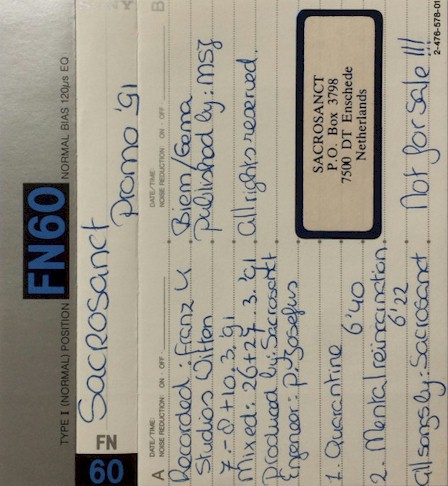 TYPE I (NORMAL) POSITION FN60 NORMAL BIAS 120µs EQ
Sacrosanct
Promo '91
FN
60
A
DATE/TIME:
NOISE REDUCTION: ON · OFF
B
DATE/TIME:
NOISE REDUCTION: ON · OFF
Recorded: Franz U
Studios Witten
7-8+10.3.'91
Mixed: 26+27.3.'91
produced by: Sacrosanct
Engeneer: P. Josefus
1. Quarantine
6'40
2. Mental reincarnation
6'22
all songs by: Sacrosanct
Biem/Gema
published by: MSJ
all rights reserved.
SACROSANCT
P.O. Box 3798
7500 DT Enschede
Netherlands
Not for sale !!!
2-476-578-01